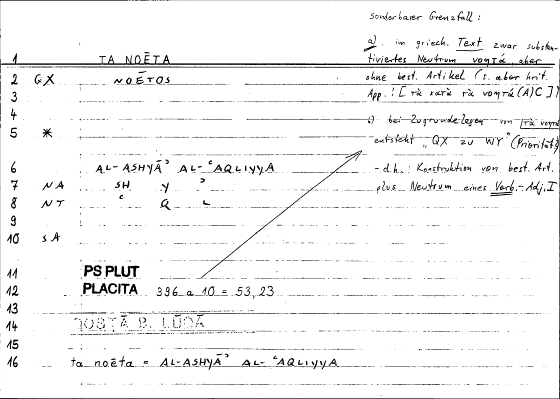 sonderbarer Grenzfall :
a) im griech. Text zwar substan-
tiviertes Neutrum νοητά, aber
ohne best. Artikel (s. aber krit.
App. : [τὰ κατὰ τὰ νοητά (A) C])
bei Zugrundelegen von τὰ νοητά
entsteht "QX zu WY" (Priorität)
- d.h.: Konstruktion von best. Art.
plus Neutrum eines Verb.-Adj. I
1 TA NOĒTA
2 GX NOĒTOS
3
4
5 *
6 AL-ASHYĀʾ AL-ʿAQLIYYA
7 NA SH Y ʾ
8 NT ʿ Q L
9
10 SA
11 PS PLUT
12 PLACITA 396 a 10 = 53,23
13
14 QOSTĀ B. LŪQĀ
15
16 ta noēta = AL-ASHYĀʾ AL-ʿAQLIYYA